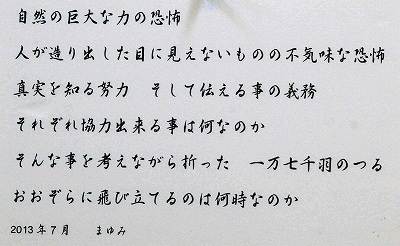 自然の巨大な力の恐怖
人が造り出した目に見えないものの不気味な恐怖
真実を知る努力　そして伝える事の義務
それぞれ協力出来る事は何なのか
そんな事を考えながら折った　一万七千羽のつる
おおぞらに飛び立てるのは何時なのか
2013年7月　まゆみ